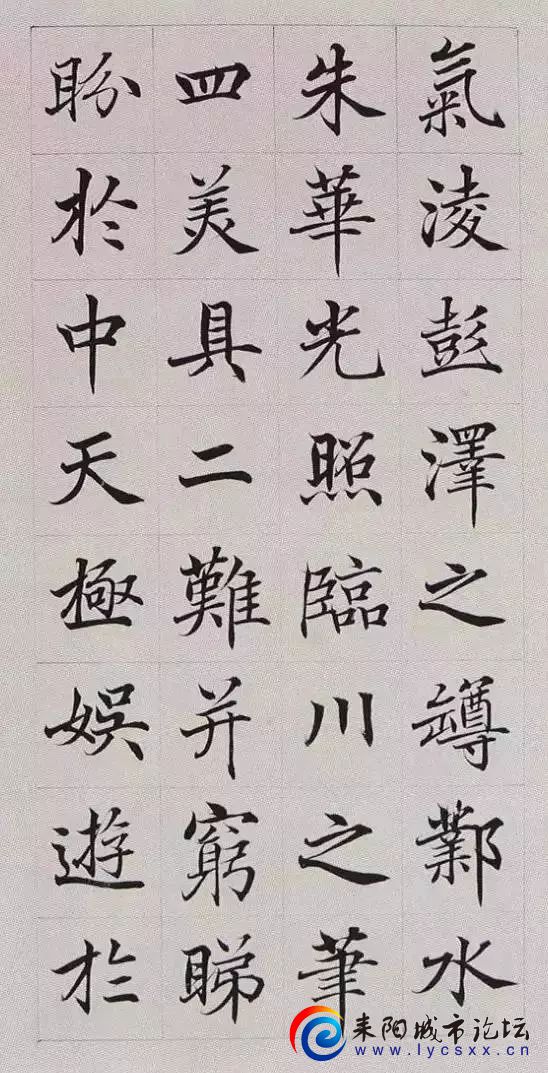 氣淩彭澤之罇鄴水
朱華光照臨川之筆
四美具二難并窮睇
盼於中天極娯遊於
耒阳城市论坛
www.lycsxx.cn